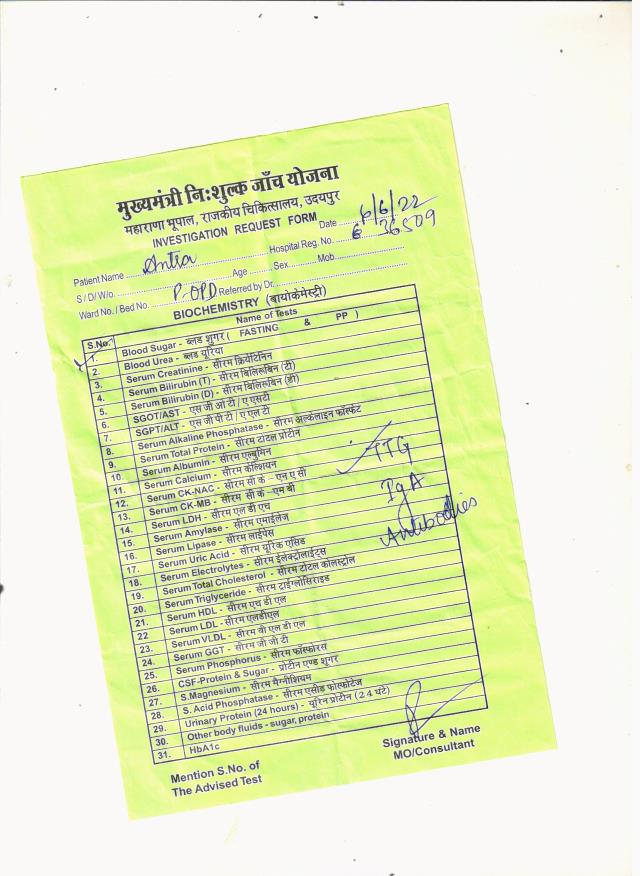 मुख्यमंत्री निःशुल्क जाँच योजना
महाराणा भूपाल, राजकीय चिकित्सालय, उदयपुर
INVESTIGATION REQUEST FORM
Date 6/6/22
Patient Name Hospital Reg. No. 36509
S / D/ W/o. Age Sex Mob.
Ward No. / Bed No. P-OPD Referred by Dr.
BIOCHEMISTRY (बायोकेमेस्ट्री)
S.No. Name of Tests
1. Blood Sugar - ब्लड शुगर ( FASTING & PP )
2. Blood Urea - ब्लड यूरिया
3. Serum Creatinine - सीरम क्रियेटिनिन
4. Serum Bilirubin (T) - सीरम बिलिरूबिन (टी)
5. Serum Bilirubin (D) - सीरम बिलिरूबिन (डी)
6. SGOT/AST - एस जी ओ टी / ए एस टी
7. SGPT/ALT - एस जी पी टी / ए एल टी
8. Serum Alkaline Phosphatase - सीरम अल्केलाइन फॉस्फेट
9. Serum Total Protein - सीरम टोटल प्रोटीन
10. Serum Albumin - सीरम एल्बुमिन
11. Serum Calcium - सीरम केल्शियन
12. Serum CK-NAC - सीरम सी के - एन ए सी
13. Serum CK-MB - सीरम सी के -एम बी
14. Serum LDH - सीरम एल डी एच
15. Serum Amylase - सीरम एमाईलेज
16. Serum Lipase - सीरम लाईपेस
17. Serum Uric Acid - सीरम यूरिक एसिड
18. Serum Electrolytes - सीरम ईलेक्ट्रोलाईट्स
19. Serum Total Cholesterol - सीरम टोटल कोलस्ट्रोल
20. Serum Triglyceride - सीरम ट्राईग्लीसिराइड
21. Serum HDL - सीरम एच डी एल
22 Serum LDL - सीरम एलडीएल
23. Serum VLDL - सीरम वी एल डी एल
24. Serum GGT - सीरम जी जी टी
25. Serum Phosphorus - सीरम फॉस्फोरस
26. CSF-Protein & Sugar - प्रोटीन एण्ड शूगर
27. S.Magnesium - सीरम मैग्नीशियम
28. S. Acid Phosphatase - सीरम एसीड फोस्फोटेज
29. Urinary Protein (24 hours) - यूरिन प्रोटीन (24 घंटे)
30. Other body fluids - sugar, protein
31. HbA1c
TTG
IgA
Antibodies
Mention S.No. of
The Advised Test
Signature & Name
MO/Consultant